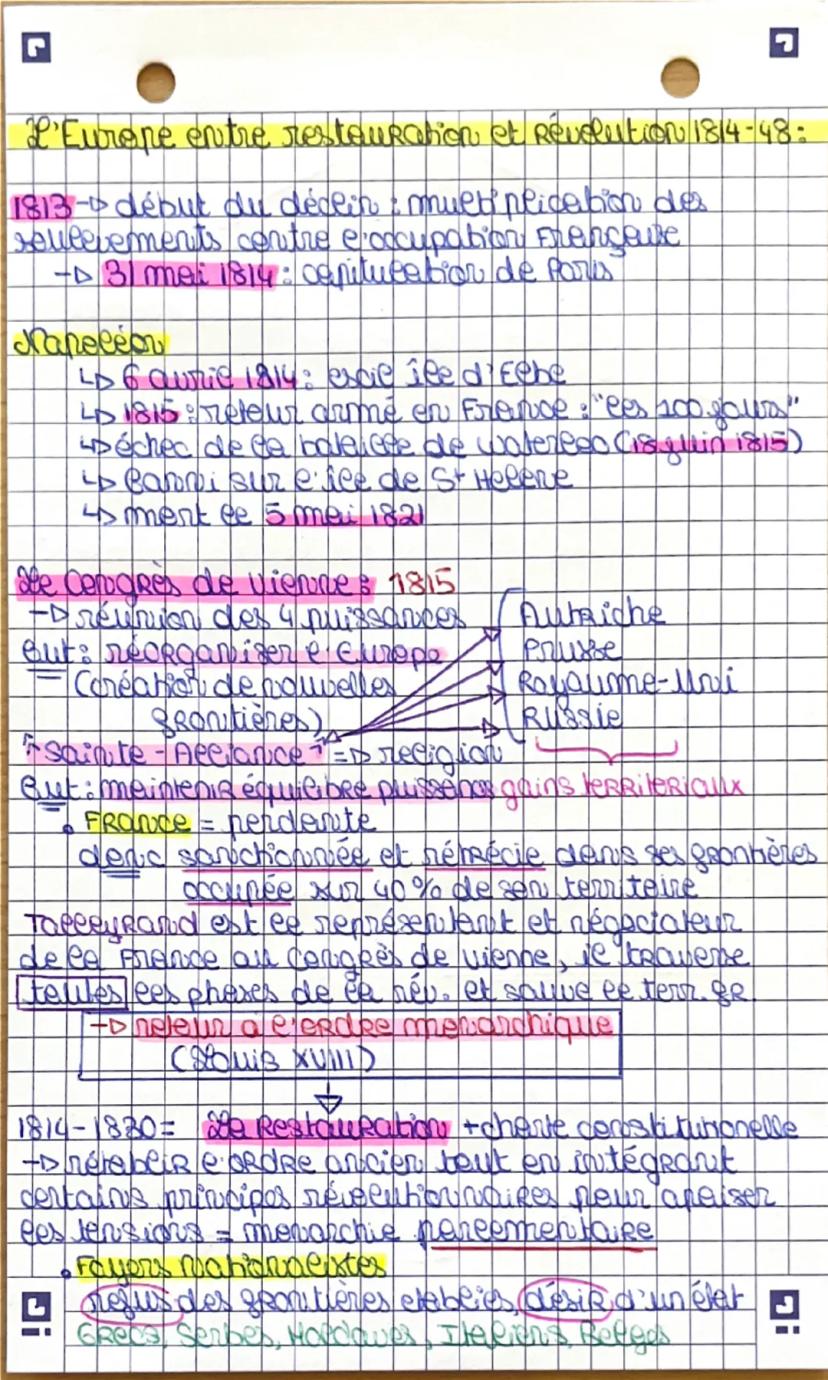 L'Europe entre restauration et Révolution 1814-48:
1813 → début du déclin : multiplication des
soulèvements contre l'occupation Française
→ 31 mai 1814 : capitulation de Paris
Napoléon
↳ 6 avril 1814 : exil île d'Elbe
↳ 1815 : retour armé en France : "les 100 jours"
↳ échec de la bataille de waterloo (18 juin 1815)
↳ banni sur l'île de St Helene
↳ mort le 5 mai 1821
Le Congrès de vienne : 1815
→ réunion des 4 puissances
Autriche
Prusse
Royaume-Uni
Russie
but : réorganiser l'Europe
(création de nouvelles
frontières)
"Sainte-Alliance" => religion
but : maintenir équilibre puissance gains territoriaux
• France = perdante
donc sanctionnée et rétrécie dans ses frontières
occupée sur 40% de son territoire
Talleyrand est le représentant et négociateur
de la France au Congrès de vienne, il traverse
toutes les phases de la rév. et sauve le terr. fr.
→ retour a l'ordre monarchique
(Louis XVIII)
1814-1830 = La Restauration + charte constitutionelle
→ rétablir l'ordre ancien tout en intégrant
certains principes révolutionnaires pour apaiser
les tensions = monarchie parlementaire
• Foyers nationalistes
refus des frontières etablies, désir d'un état
Grecs, Serbes, Moldaves, Italiens, Belges